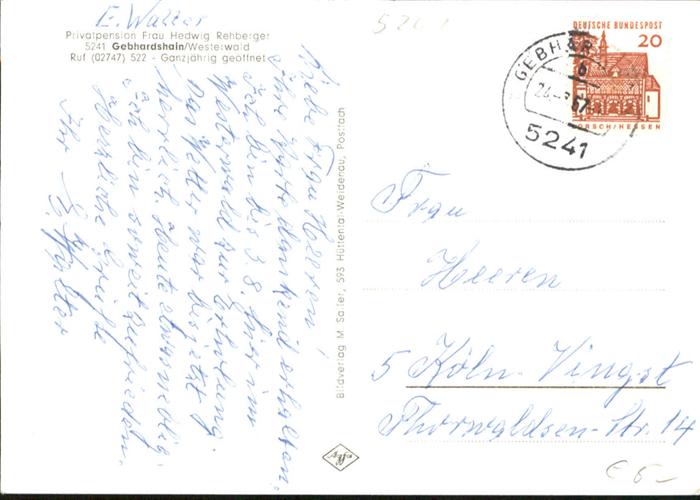 E. Walter
Privatpension Frau Hedwig Rehberger
5241 Gebhardshain/Westerwald
Ruf (02747) 522 - Ganzjährig geöffnet
Liebe Frau Heeren!
Ihre Karte dankend erhalten.
Ich bin bis 3.8. hier im
Westerwald zur Erholung.
Das Wetter war bis jetzt
herrlich, heute etwas neblig.
Ich bin soweit zufrieden.
Herzliche Grüße
Ihr E. Walter
Bildverlag M. Sater, 593 Hüttental-Weidenau, Postfach
5241
DEUTSCHE BUNDESPOST
20
LORSCH/HESSEN
GEBHAR
b
67
5241
Frau
Heeren
5 Köln-Vingst
Thorwaldsen-Str. 14
€ 5-